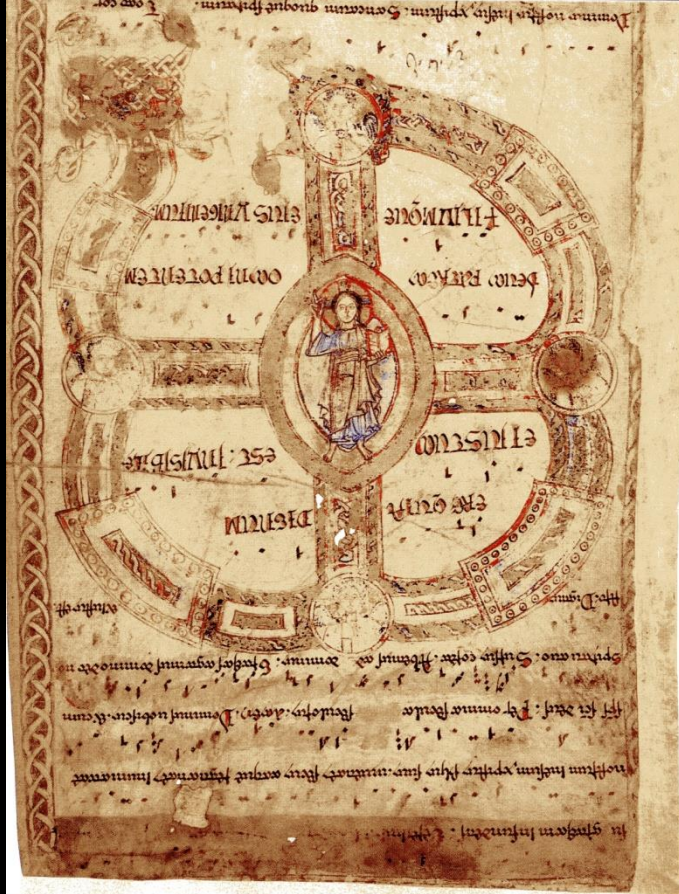 gratiam infundens :
nostrum iesum xpistum filium suum : uiuentem secum atque regnantem in unitate
Per omnia secula seculorum : amen : Dominus uobiscum . Et cum
Spiritu tuo : Sursum corda : Habemus ad dominum : Gratias agamus domino deo no
stro : Dignum et iustum est
ERE QUIA DIGNUM
ET IUSTUM EST : INVISIBILE
DEUM PATREM OMNIPOTENTEM
FILIUMQUE EIUS VNIGENITUM
Dominum nostrum iesum xpistum : Sanctum quoque spiritum . Toto cor